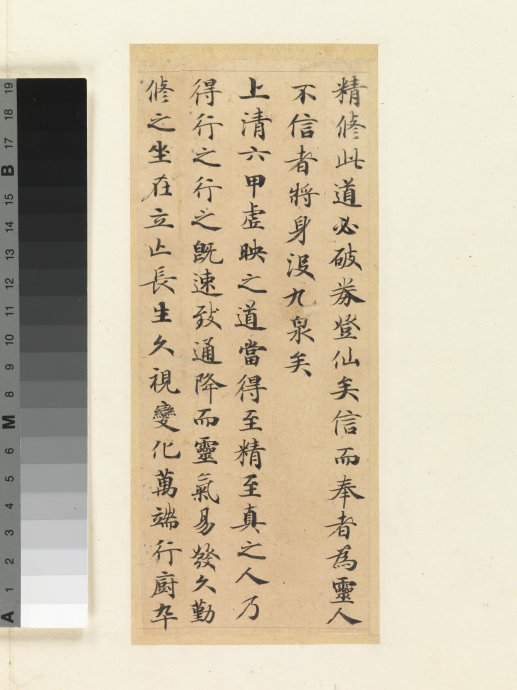 精脩此道必破券登仙矣信而奉者為靈人
不信者將身沒九泉矣
上清六甲虛映之道當得至精至真之人乃
得行之行之既速致通降而靈氣易發久勤
脩之坐在立亡長生久視變化萬端行廚卒
19
18
17
B
15
14
13
12
11
10
9
8
M
6
5
4
3
2
1
A